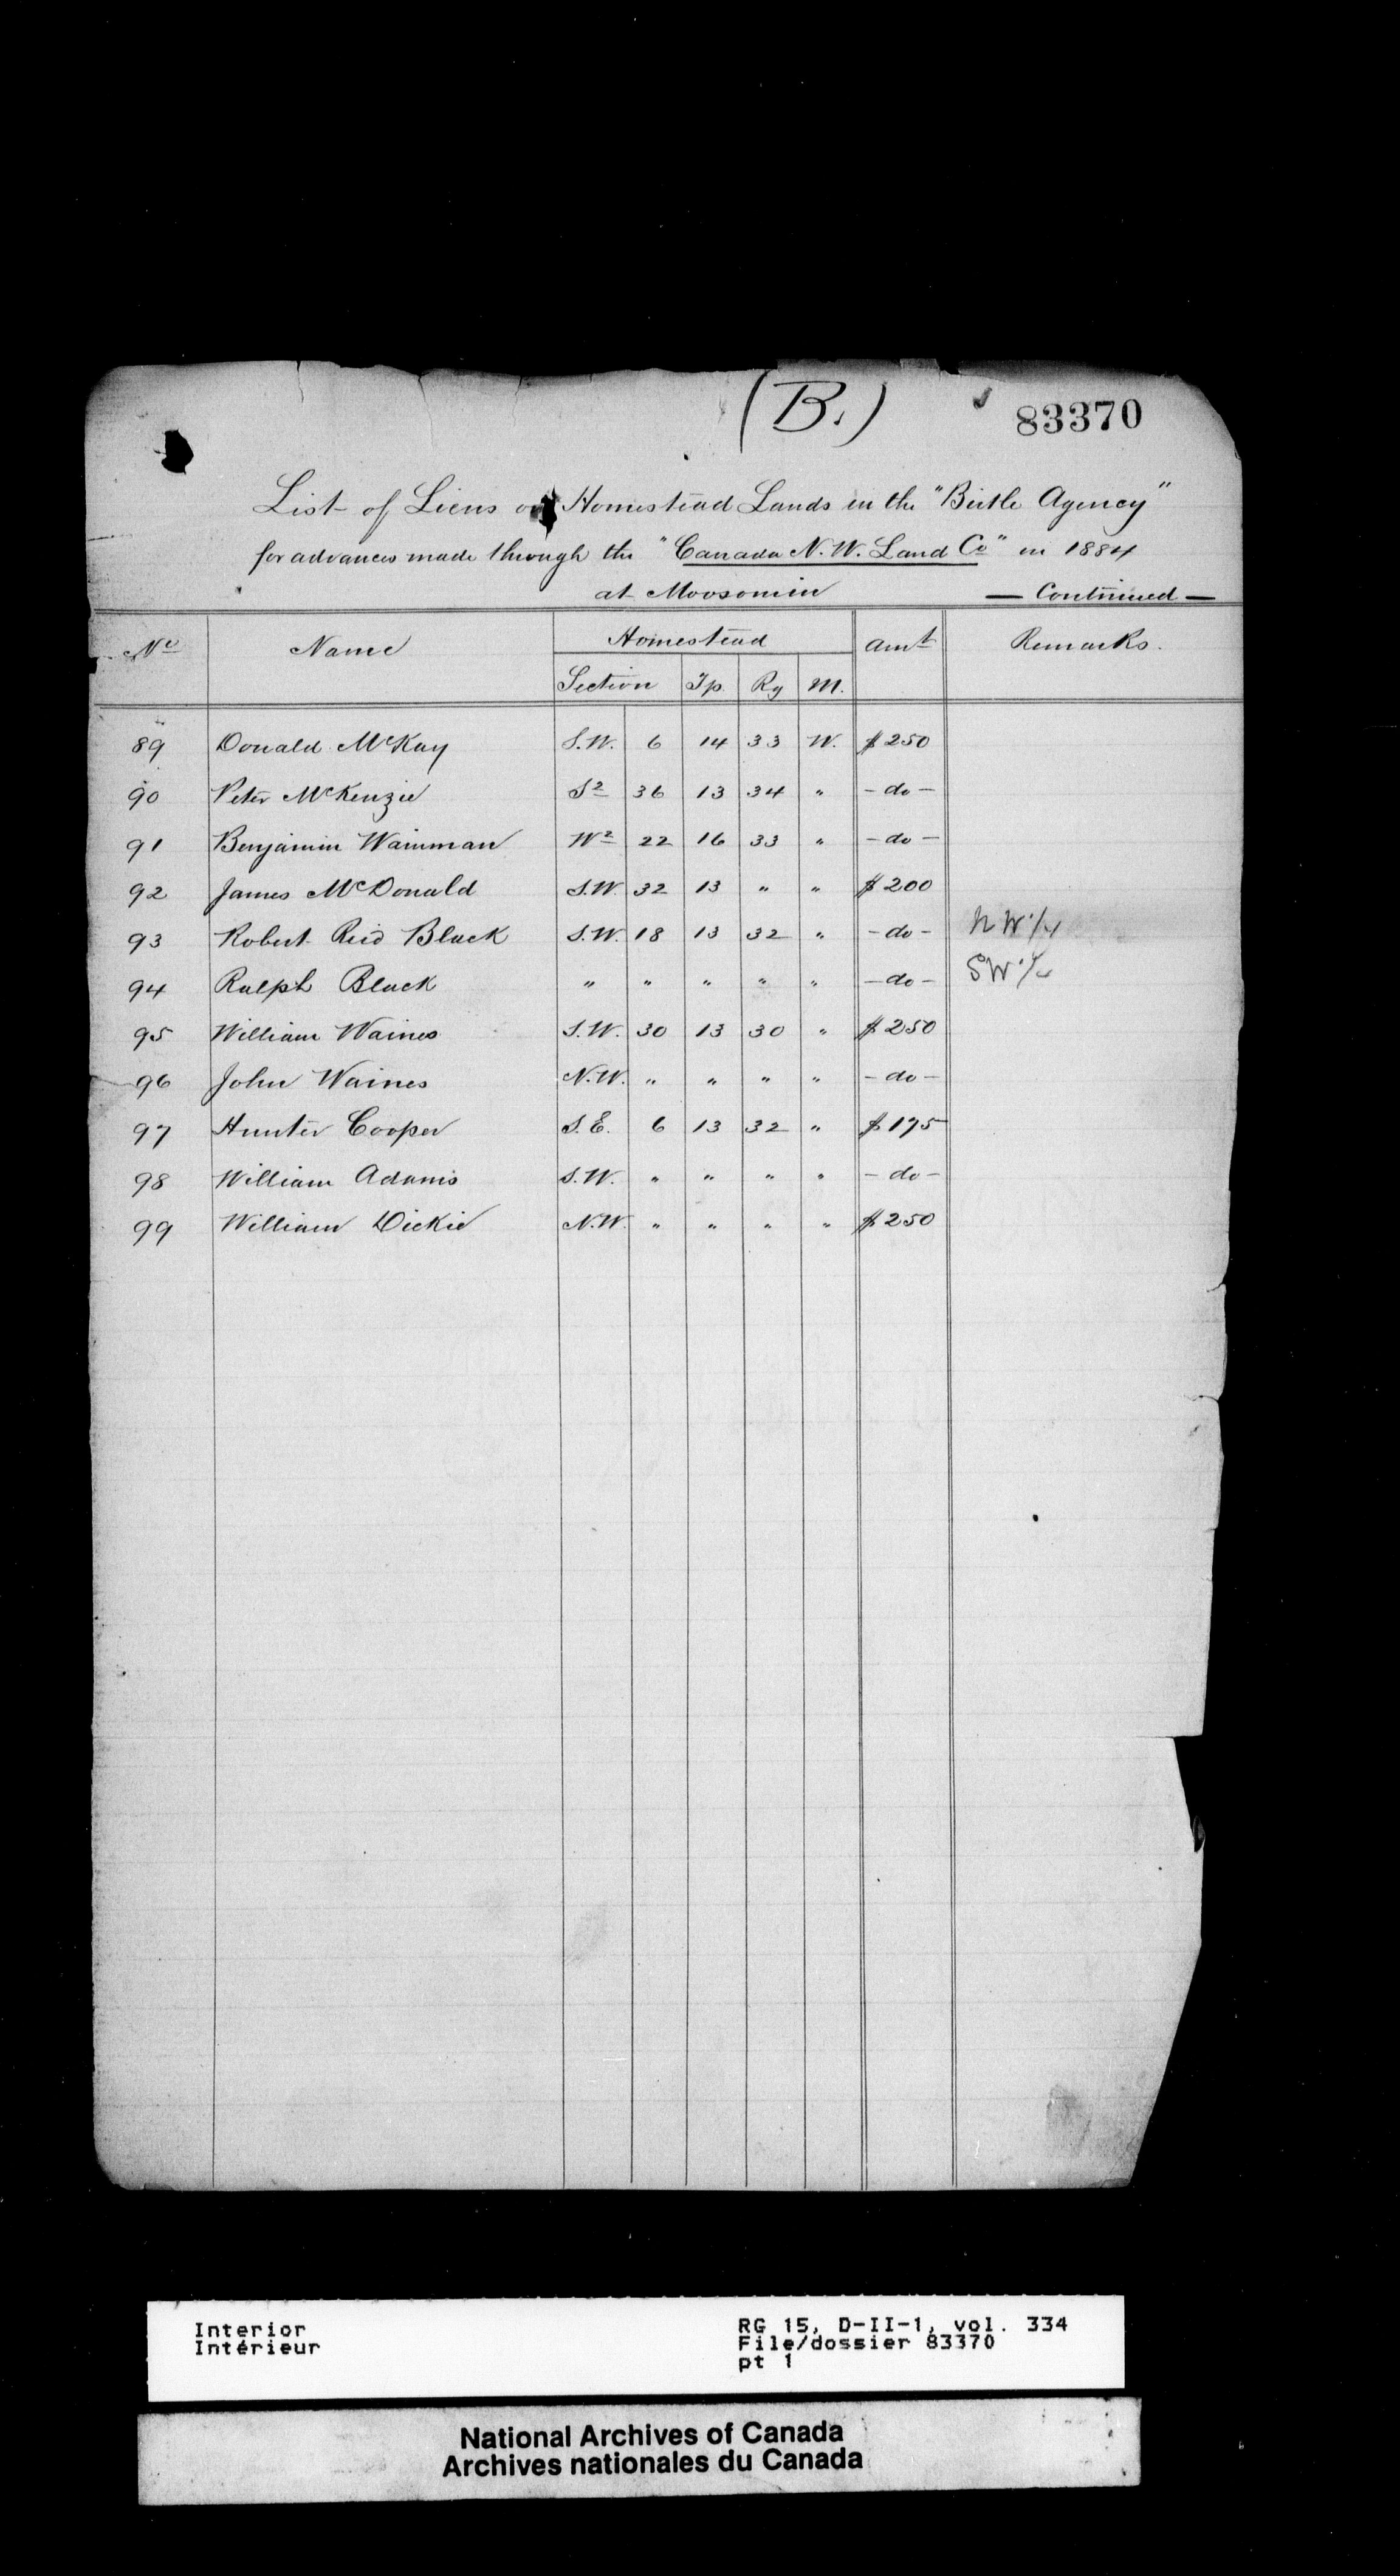 (B.)
83370
List of Liens on Homestead Lands in the "Birtle Agency"
for advances made through the "Canada N.W. Land Co" in 1884
at Moosomin — Continued —
No Name Homestead Amt Remarks.
Section Tp. Rg M.
89 Donald McKay S.W. 6 14 33 W. $250
90 Peter McKenzie S2 36 13 34 " - do -
91 Benjamin Wainman W2 22 16 33 " - do -
92 James McDonald S.W. 32 13 " " $200
93 Robert Reid Black S.W. 18 13 32 " - do - NW 1/4
94 Ralph Black " " " " " - do - SW 1/4
95 William Waines S.W. 30 13 30 " $250
96 John Waines N.W. " " " " - do -
97 Hunter Cooper S.E. 6 13 32 " $175
98 William Adams S.W. " " " " - do -
99 William Dickie N.W. " " " " $250
Interior RG 15, D-II-1, vol. 334
Intérieur File/dossier 83370
pt 1
National Archives of Canada
Archives nationales du Canada